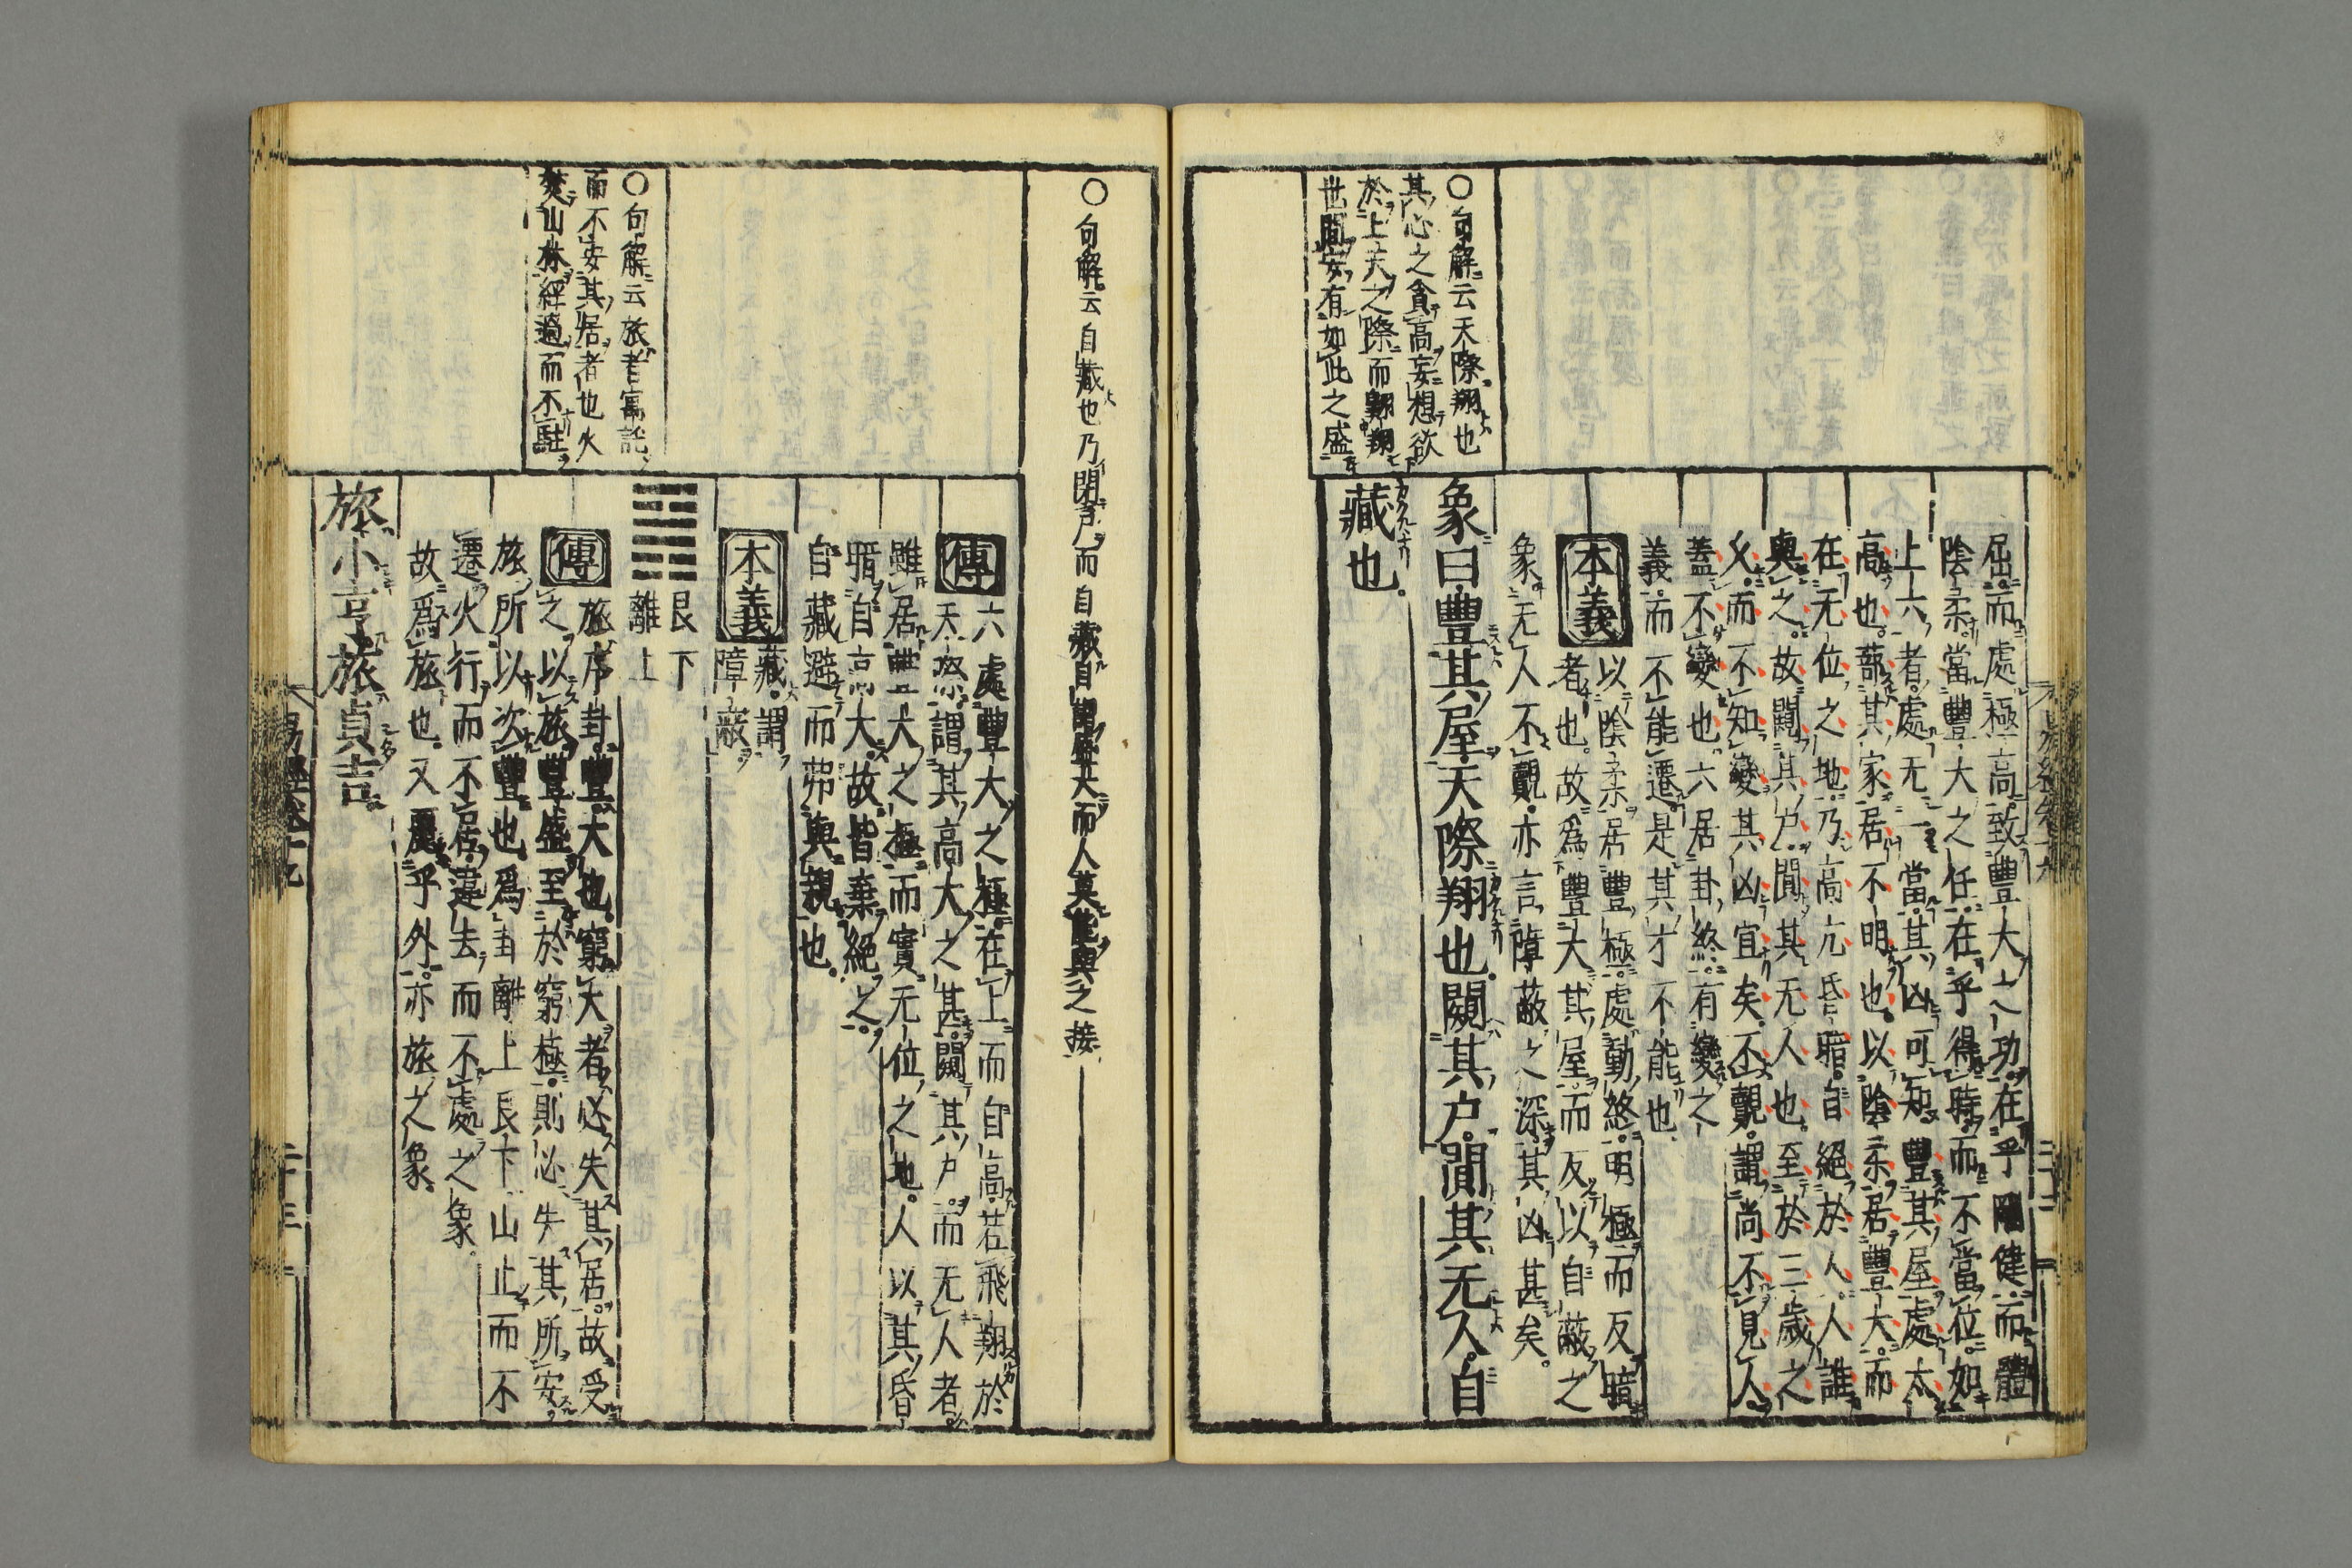 屈而處極高致豐大之功在乎剛健而體
陰柔當豐大之任在乎得時而不當位如
上六者處无一當其凶可知豐其屋處太
高也蔀其家居不明也以陰柔居豐大而
在无位之地乃高亢昏暗自絕於人人誰
與之故闚其户闃其无人也至於三歲之
乆而不知變其凶宜矣不覿謂尚不見人
蓋不變也六居卦終有變之
義而不能遷是其才不能也
本義
以陰柔居豐極處動終明極而反暗
者也故為豐大其屋而反以自蔽之
象无人不覿亦言障蔽之深其凶甚矣
象曰豐其屋天際翔也闚其户闃其无人自
藏也
○句解云天際翔也
其心之貪高妄想欲
於上天之際而翺翔
世間安有如此之盛
○句解云自藏也乃閉户而自藏自謂盛大而人莫能與之接
傳
六處豐大之極在上而自高若飛翔於
天際謂其高大之甚闚其户而无人者
雖居豐大之極而實无位之地人以其昏
暗自高大故皆棄絕之
自藏避而弗與親也
本義
藏謂
障蔽
艮下
離上
傳
旅序卦豐大也窮大者必失其居故受
之以旅豐盛至於窮極則必失其所安
旅所以次豐也爲卦離上艮下山止而不
遷火行而不居違去而不處之象
故爲旅也又麗乎外亦旅之象
旅小亨旅貞吉
○句解云旅者寓託
而不安其居者也火
焚山林經過而不駐
易經卷十九
二十三